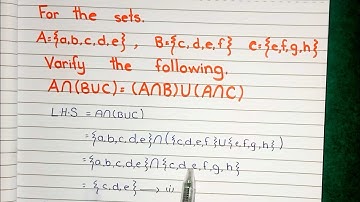 For the sets.
A={a,b,c,d,e}, B={c,d,e,f} C={e,f,g,h}
Varify the following.
A∩(B∪C)=(A∩B)∪(A∩C)
L.H.S = A∩(B∪C)
={a,b,c,d,e}∩({c,d,e,f}∪{e,f,g,h})
={a,b,c,d,e}∩{c,d,e,f,g,h}
={c,d,e}→ii